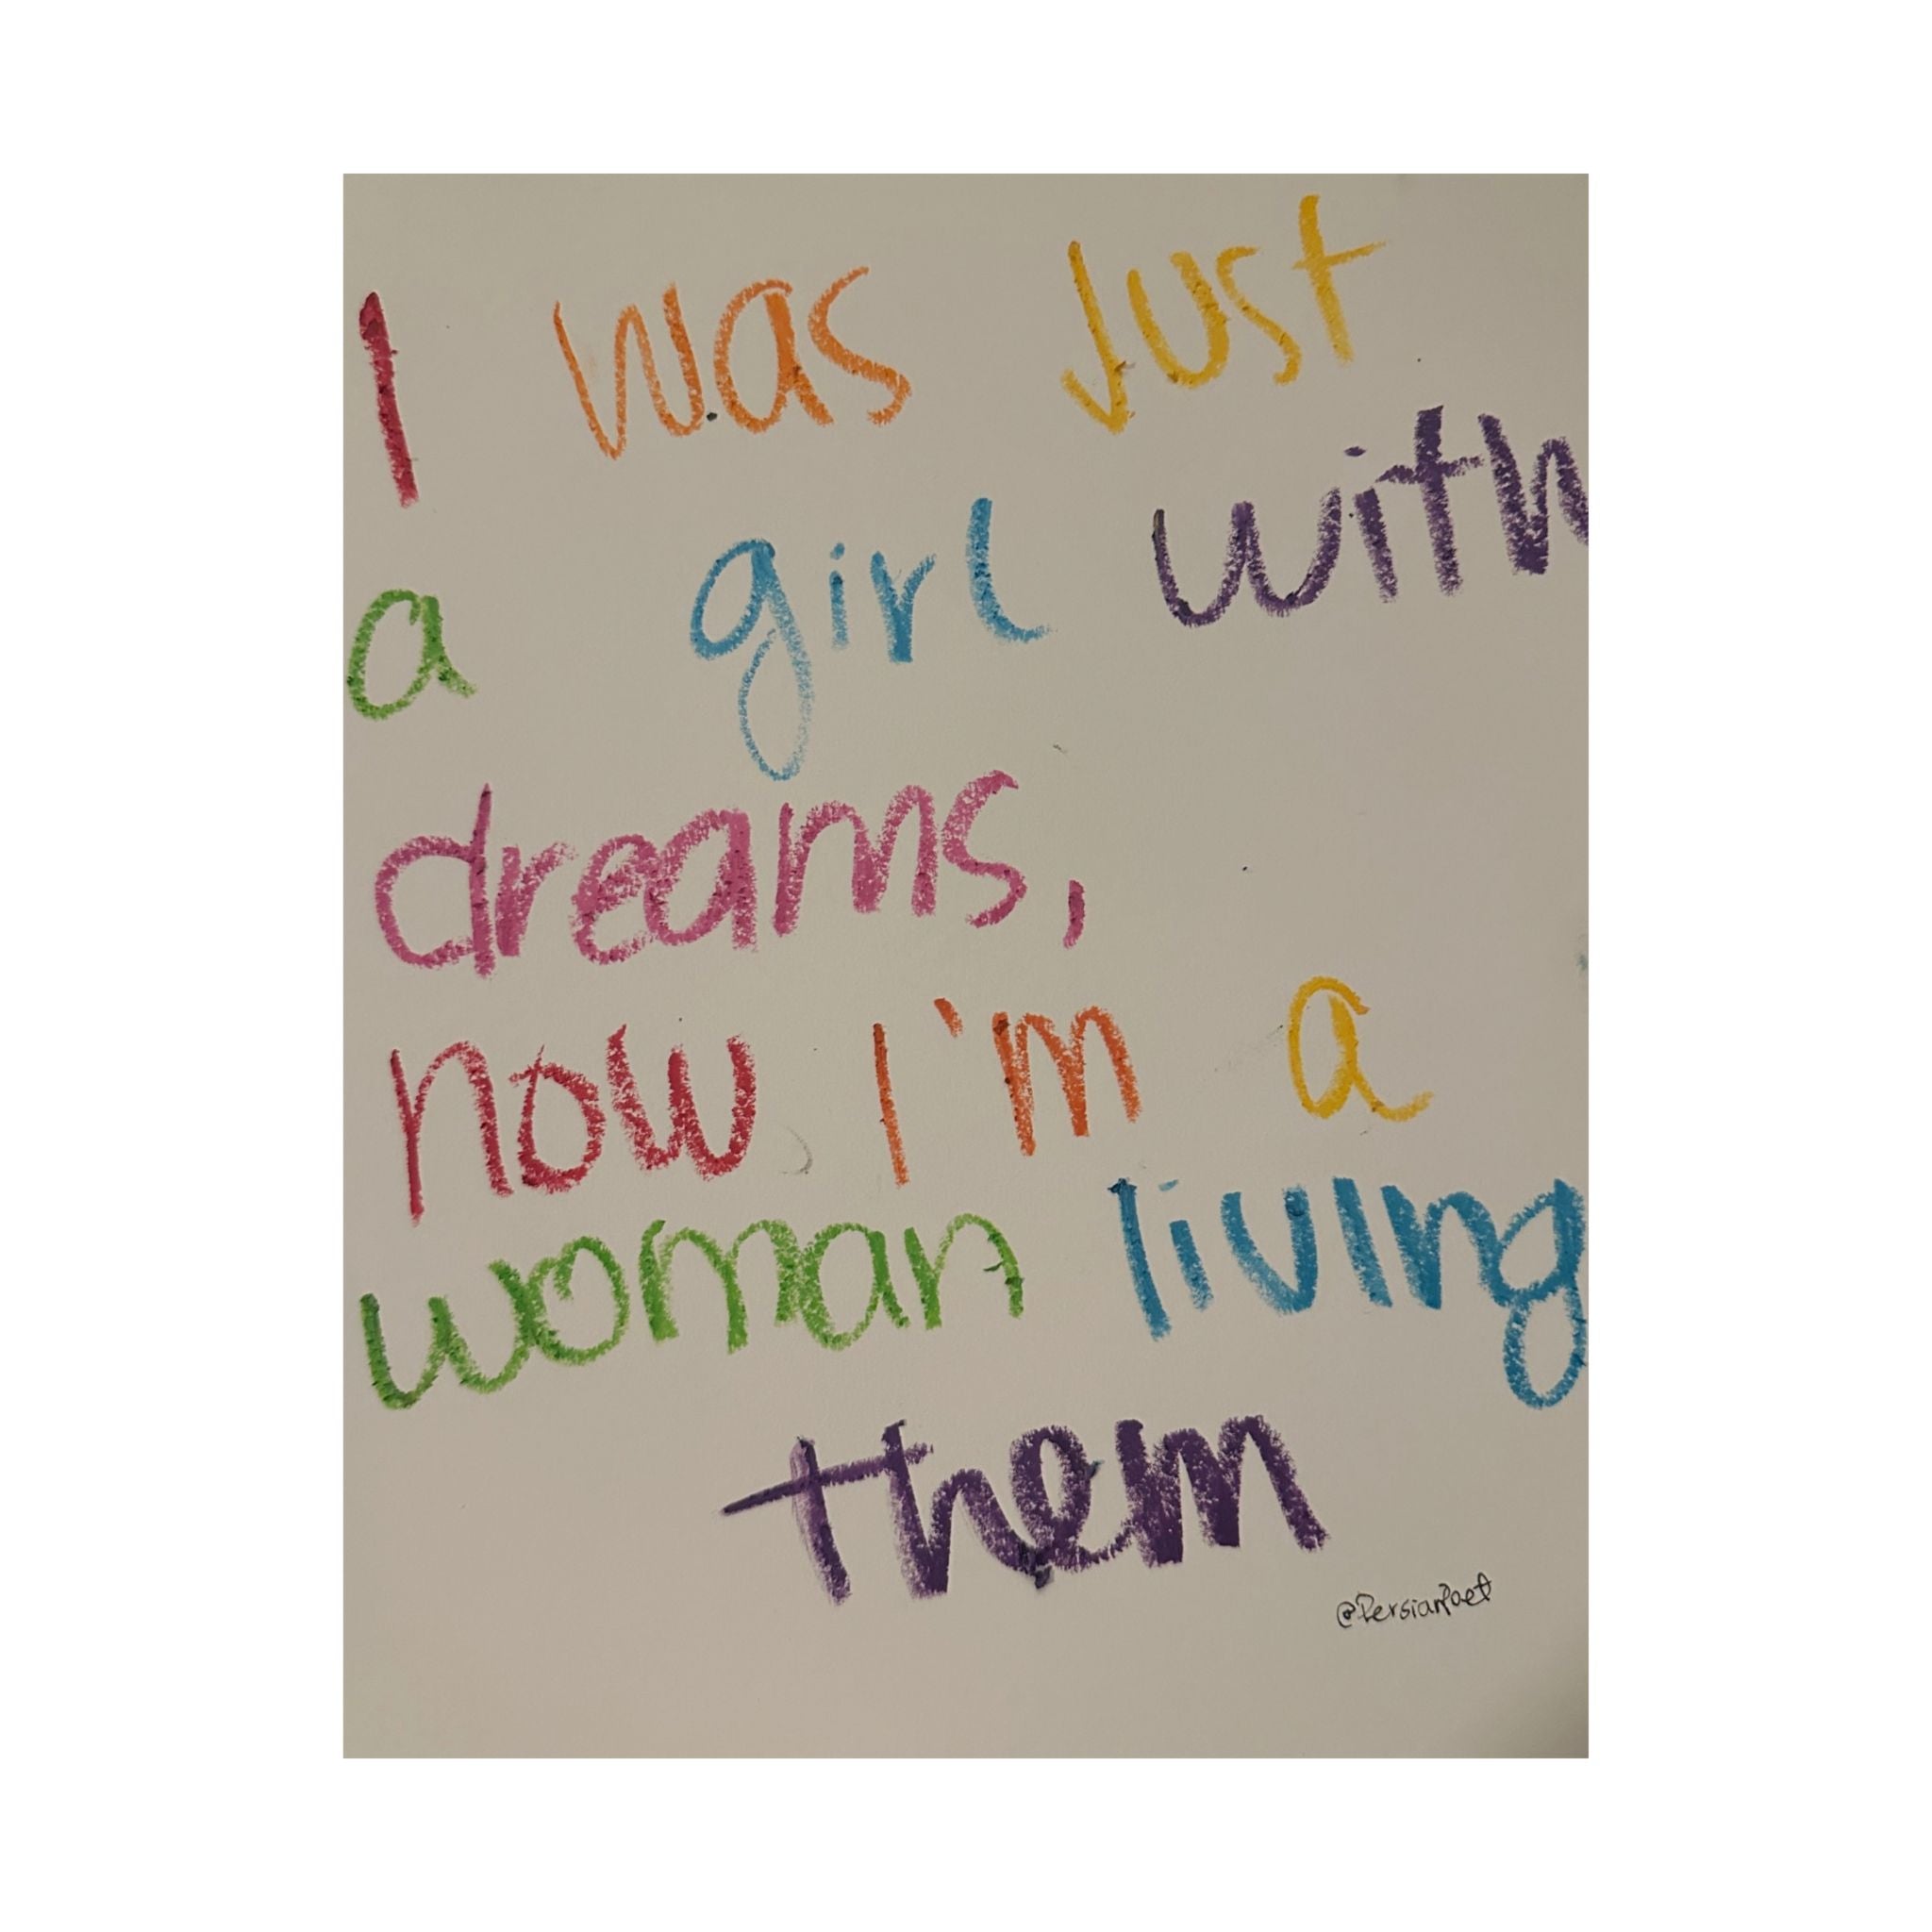 I was Just
a girl with
dreams,
now I'm a
woman living
them
@PersianPoet